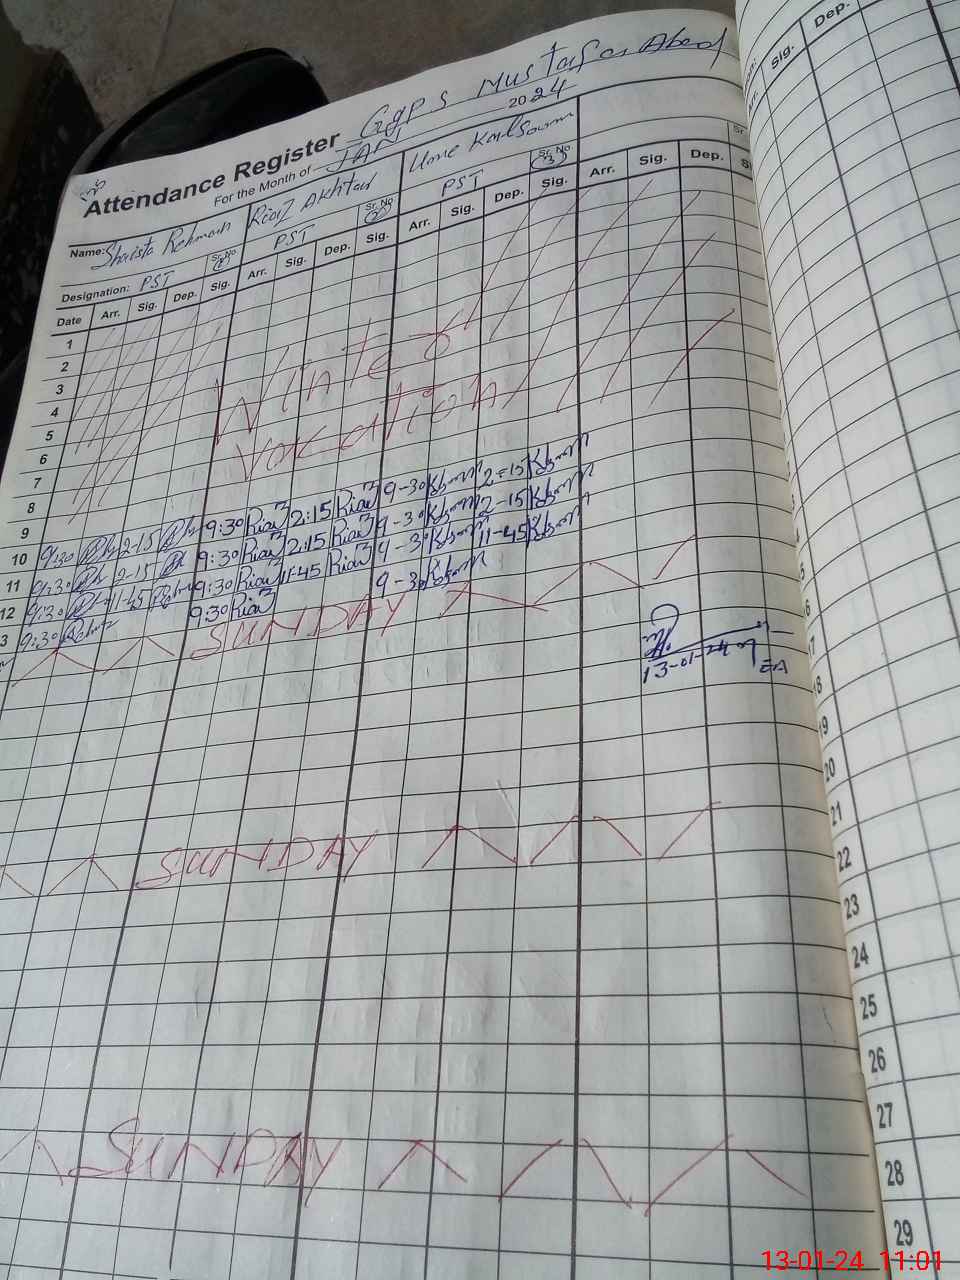 Attendance Register GgPS Mustafa Abad
For the Month of JAN 2024
Name: Shaista Rehman Riaz Akhtar Ume Kalsoom
Designation: PST Sr. No 1 PST Sr. No 2 PST Sr. No 3 Sr.
Date Arr. Sig. Dep. Sig. Arr. Sig. Dep. Sig. Arr. Sig. Dep. Sig. Arr. Sig. Dep. S
1
2
3
4
5
6
7
8
9
Winter
Vacation
10 9:30 2-15 9:30 Riaz 2:15 Riaz 9-30 Kbsmm 2-15 Kbsmm
11 9:30 2-15 9:30 Riaz 2:15 Riaz 9-30 Kbsmm 2-15 Kbsmm
12 9:30 11-45 9:30 Riaz 11-45 Riaz 9-30 Kbsmm 11-45 Kbsmm
3 9:30 9:30 Riaz 9-30 Kbsmm
SUNDAY
13-01-24
SUNDAY
SUNDAY
Sig. Dep.
5
6
17
18
19
20
21
22
23
24
25
26
27
28
29
13-01-24 11:01